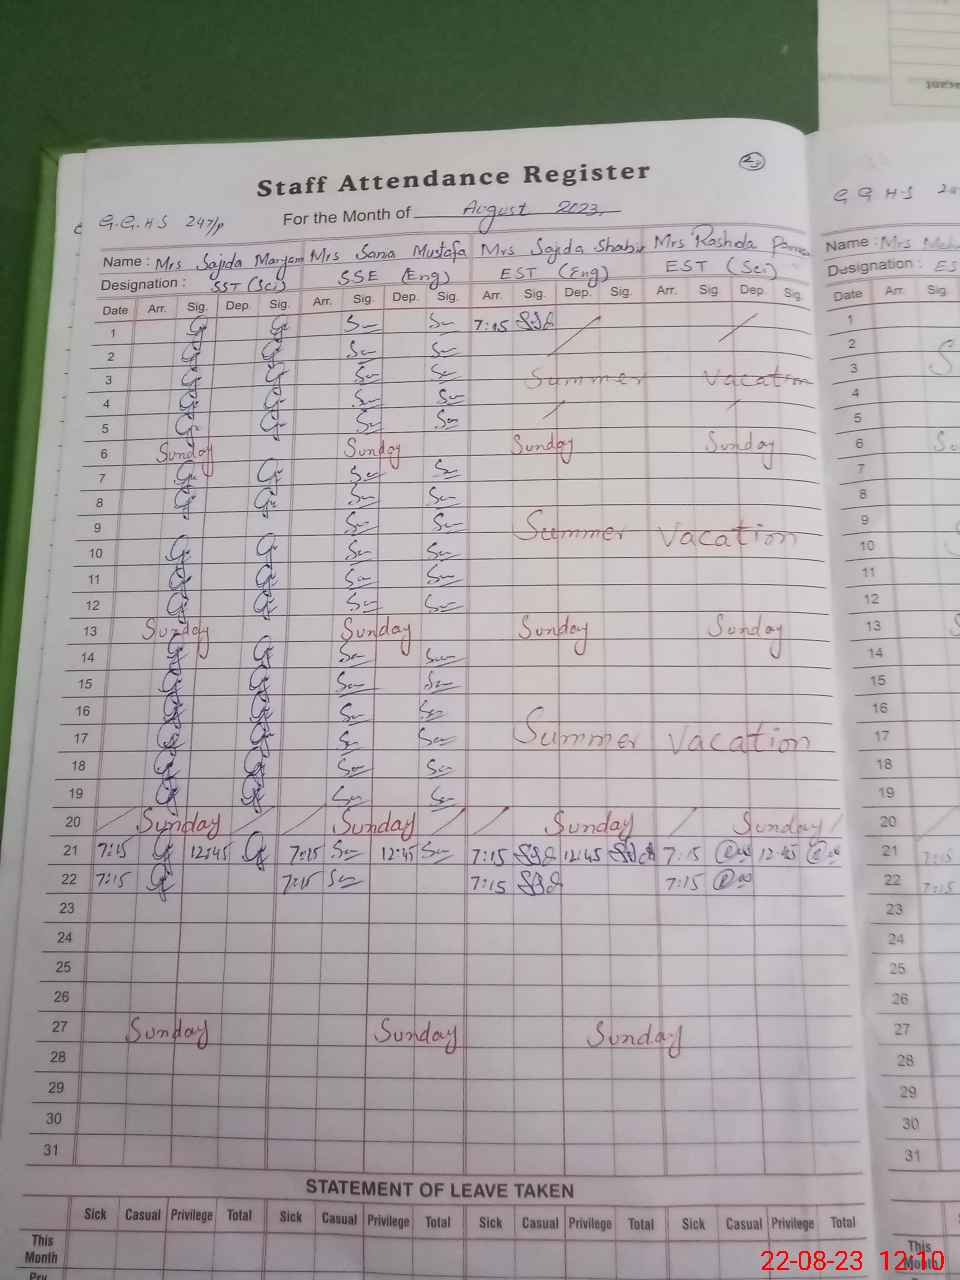 2
Staff Attendance Register
G.G.HS 247/P For the Month of August 2023.
Name : Mrs Sajida Maryam Mrs Sania Mustafa Mrs Sajda Shabir Mrs Rashda
Designation : SST (Sci) SSE (Eng) EST (Eng) EST (Sci)
Date Arr. Sig. Dep. Sig. Arr. Sig. Dep. Sig. Arr. Sig. Dep. Sig. Arr. Sig Dep Sig.
1 7:15
2
3 Summer Vacation
4
5
6 Sunday Sunday Sunday Sunday
7
8
9 Summer Vacation
10
11
12
13 Sunday Sunday Sunday Sunday
14
15
16
17 Summer Vacation
18
19
20 Sunday Sunday Sunday Sunday
21 7:15 12:45 7:15 12:45 7:15 12:45 7:15 12:45
22 7:15 7:15 7:15 7:15
23
24
25
26
27 Sunday Sunday Sunday
28
29
30
31
STATEMENT OF LEAVE TAKEN
Sick Casual Privilege Total Sick Casual Privilege Total Sick Casual Privilege Total Sick Casual Privilege Total
This
Month
G G H S
Name : Mrs
Designation : ES
Date Arr. Sig.
1
2
3
4
5
6
7
8
9
10
11
12
13
14
15
16
17
18
19
20
21 7:15
22 7:15
23
24
25
26
27
28
29
30
31
This
Month
22-08-23 12:10